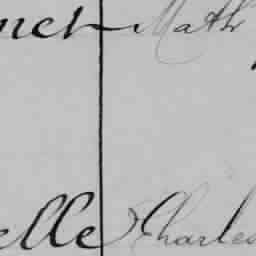 Math
elle Charles